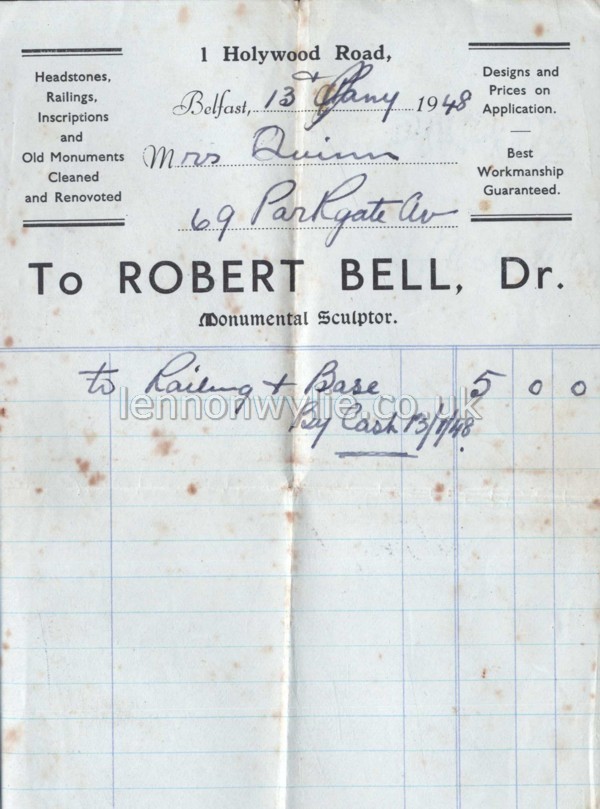 1 Holywood Road,
Headstones,
Railings,
Inscriptions
and
Old Monuments
Cleaned
and Renovoted
Belfast, 13 Jany 1948
Designs and
Prices on
Application.
Best
Workmanship
Guaranteed.
Mrs Quinn
69 Parkgate Av
To ROBERT BELL, Dr.
Monumental Sculptor.
to Railing + Base 5 0 0
By Cash 13/1/48
lennonwylie.co.uk